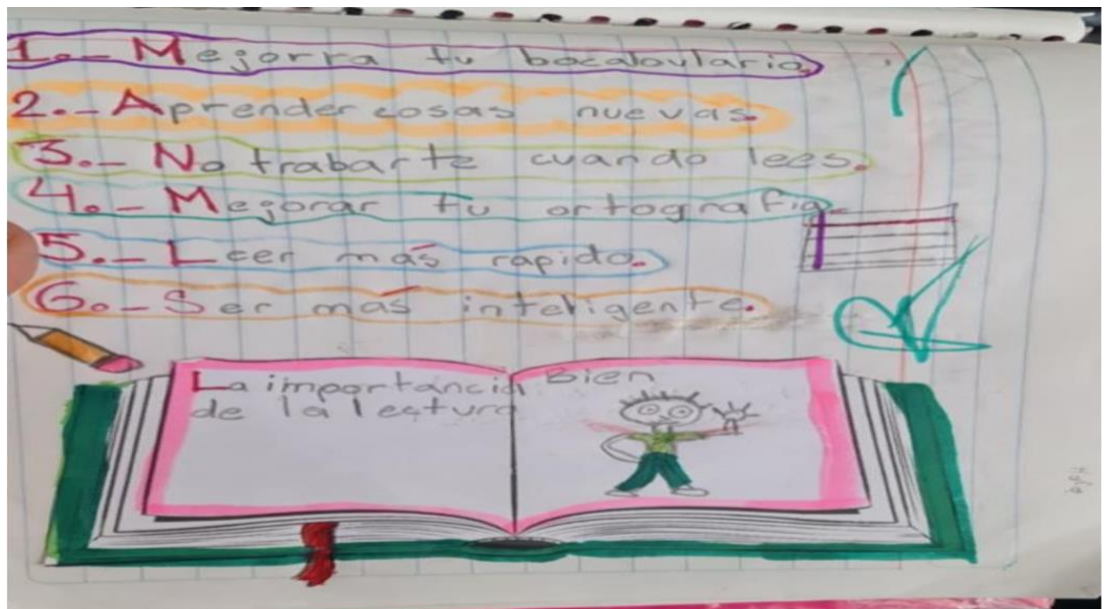 1.- Mejorra tu bocaloulario.
2.- Aprender cosas nuevas.
3.- No trabarte cuando lees.
4.- Mejorar tu ortografia.
5.- Leer más rapido.
6.- Ser más inteligente.
La importancia
de la lectura
Bien